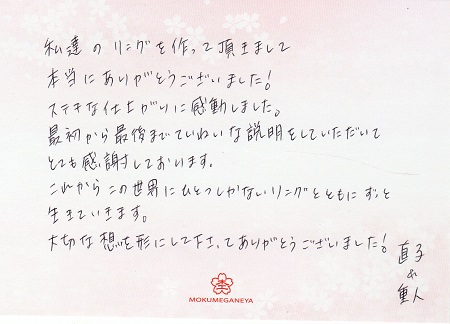 私達のリングを作って頂きまして
本当にありがとうございました!
ステキな仕上がりに感動しました。
最初から最後までていねいな説明をしていただいて
とても感謝しております。
これからこの世界にひとつしかないリングとともにずっと
生きていきます。
大切な想いを形にして下さってありがとうございました!
直子
&
重人
MOKUMEGANEYA